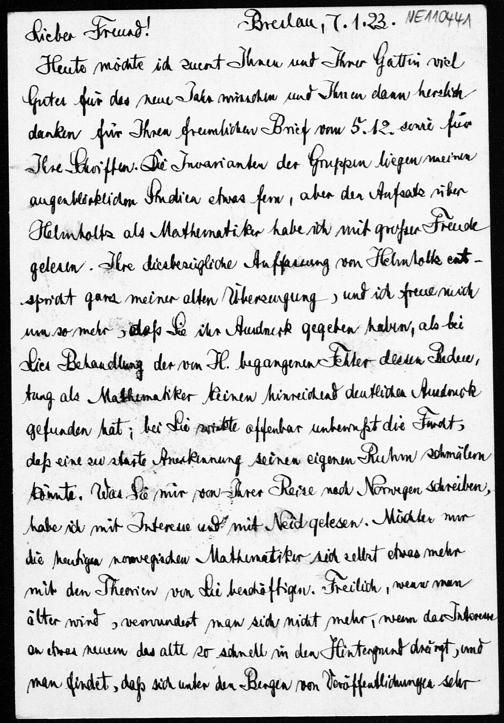 NE110441
Breslau, 7.1.23.
Lieber Freund!
Heute möchte ich zuerst Ihnen und Ihrer Gattin viel
Gutes für das neue Jahr wünschen und Ihnen dann herzlich
danken für Ihren freundlichen Brief vom 5.12. sowie für
Ihre Schriften. Die Invarianten der Gruppen liegen meinen
augenblicklichen Studien etwas fern, aber den Aufsatz über
Helmholtz als Mathematiker habe ich mit großer Freude
gelesen. Ihre diesbezügliche Auffassung von Helmholtz ent-
spricht ganz meiner alten Überzeugung, und ich freue mich
um so mehr, daß Sie ihr Ausdruck gegeben haben, als bei
Lies Behandlung der von H. begangenen Fehler dessen Bedeu-
tung als Mathematiker keinen hinreichend deutlichen Ausdruck
gefunden hat; bei Lie wirkte offenbar unbewußt die Furcht,
daß eine zu starke Anerkennung seinen eigenen Ruhm schmälern
könnte. Was Sie mir von Ihrer Reise nach Norwegen schreiben,
habe ich mit Interesse und mit Neid gelesen. Möchten nur
die heutigen norwegischen Mathematiker sich selbst etwas mehr
mit den Theorien von Lie beschäftigen. Freilich, wenn man
älter wird, verwundert man sich nicht mehr, wenn das Interesse
an etwas neuem das alte so schnell in den Hintergrund drängt, und
man findet, daß sich unter den Bergen von Veröffentlichungen sehr